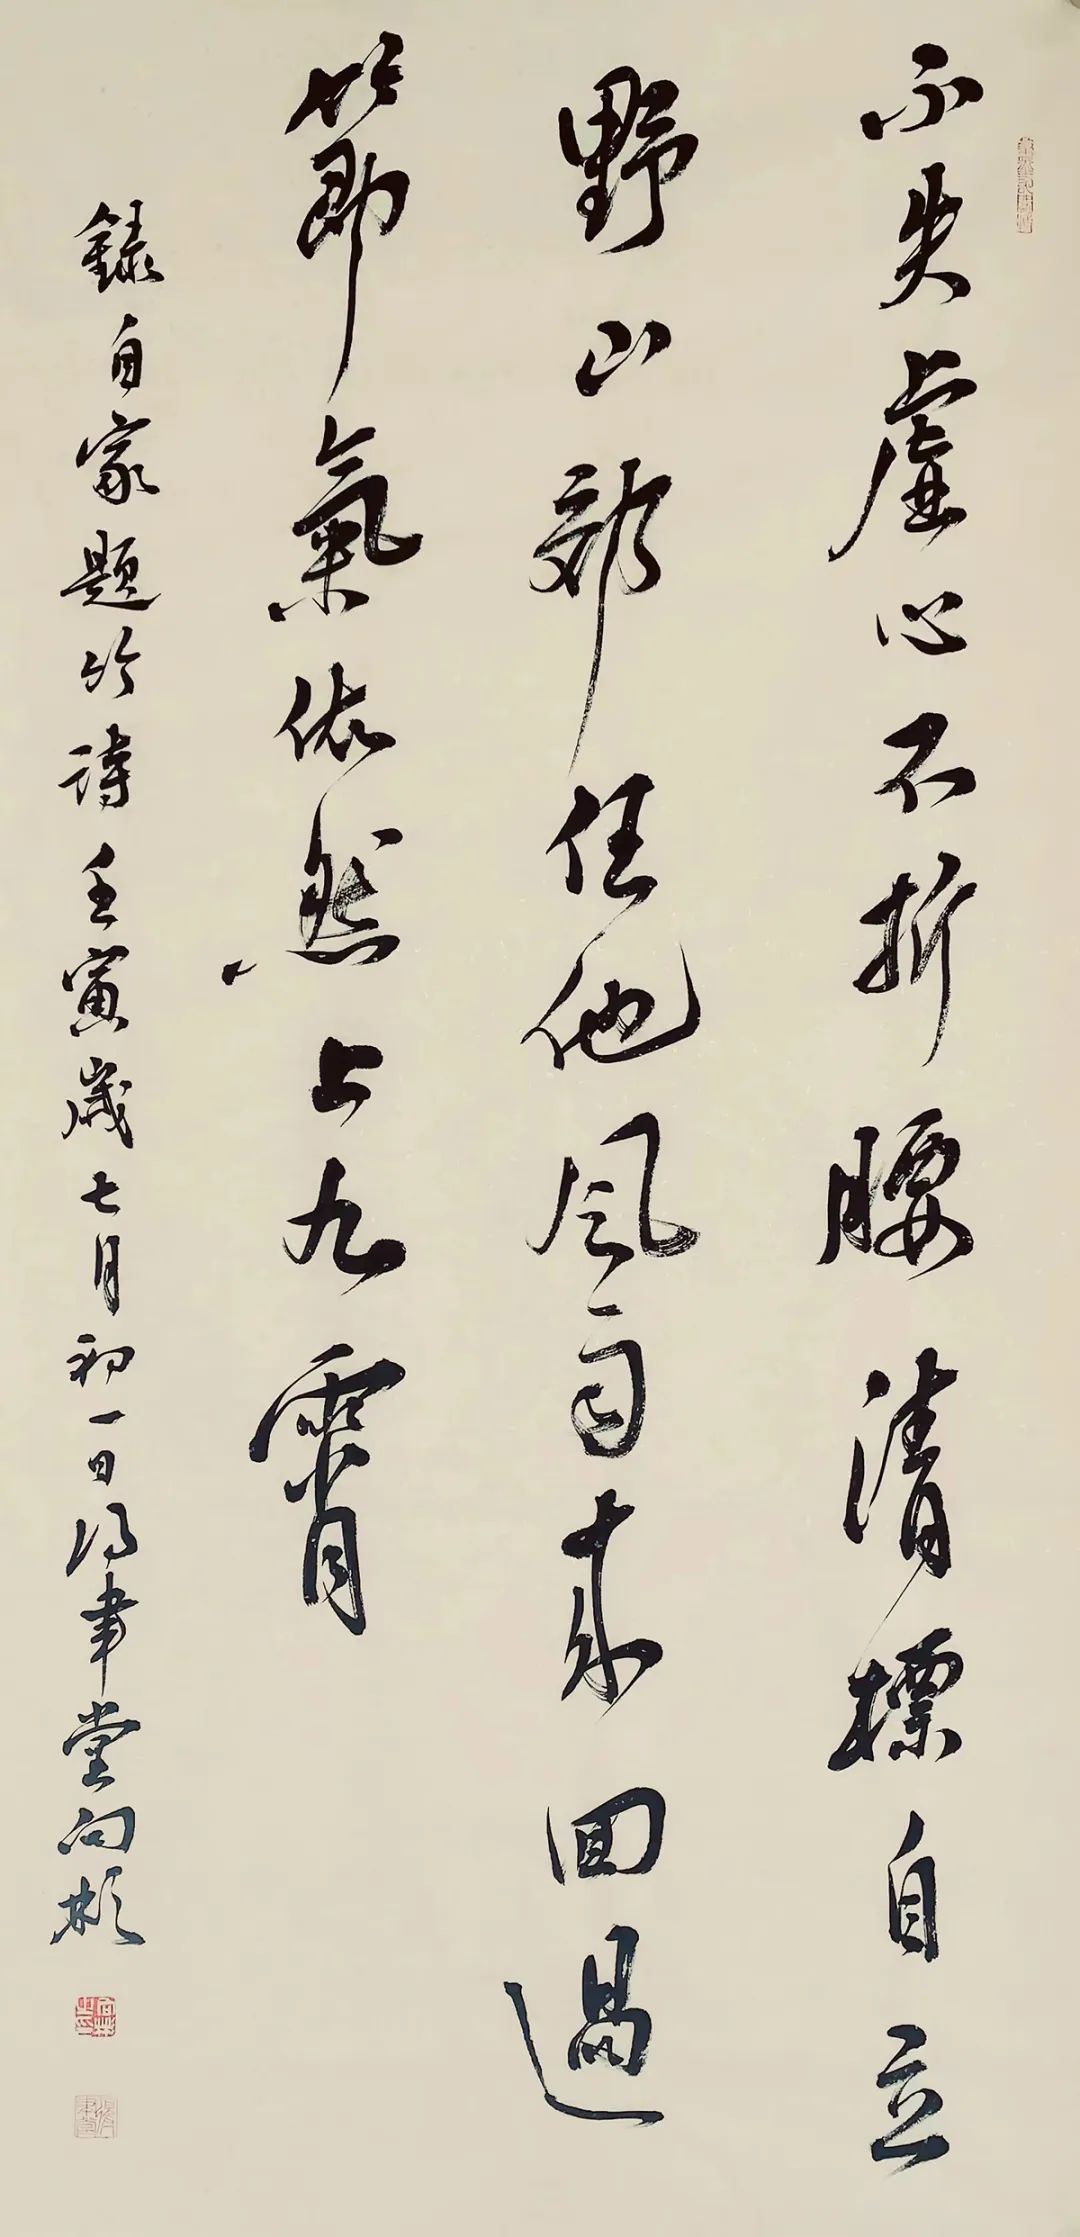 不失虛心不折腰清標自立
野山郊任他風雨來回過
節氣依然上九霄
錄自家題竹詩壬寅歲七月初一日得聿堂向彬